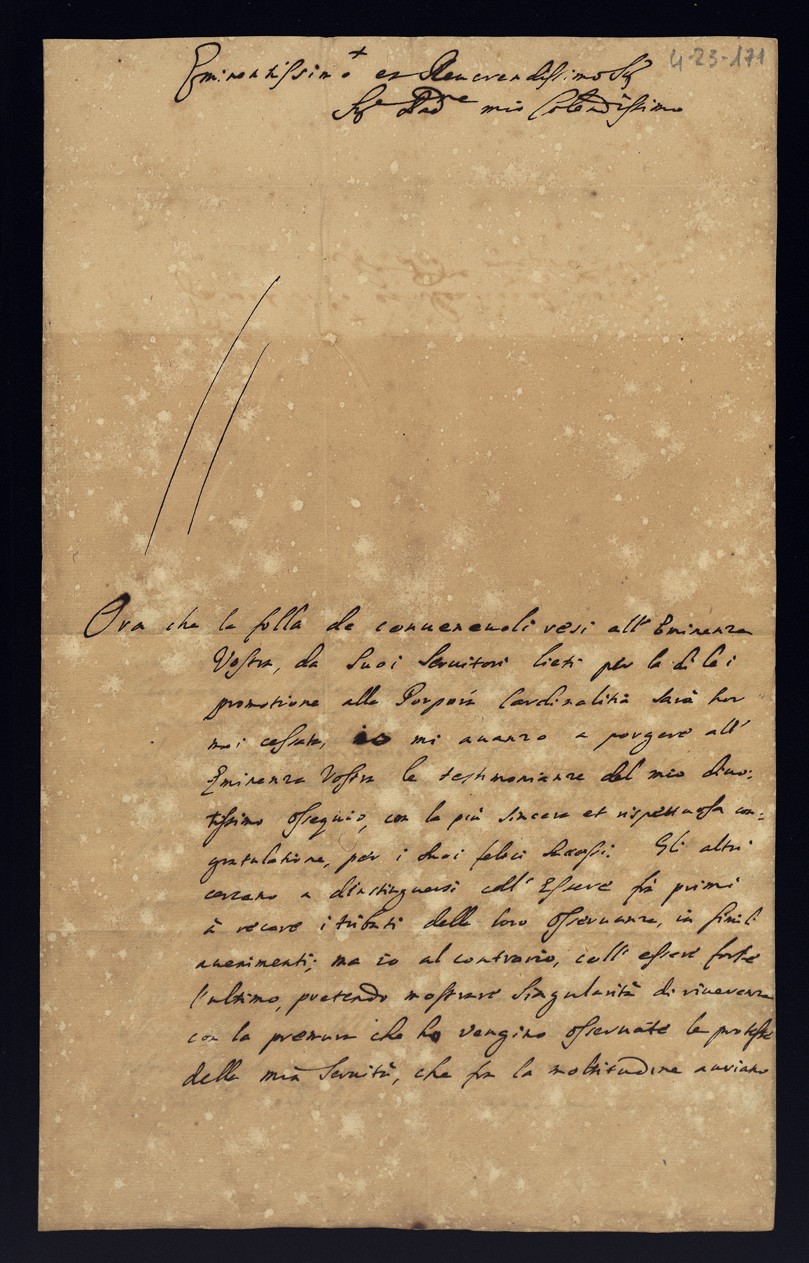 4-23-171
Eminentissimo et Reuerendissimo Sigr
Sigr Padne mio Colendissimo
Ora che la folla de conueneuoli resi all' Eminenza
Vostra, da Suoi Seruitori lieti per la di lei
promotione alla Porpora Cardinalitia sarà hor
mai cessata, io mi auanzo a porgere all'
Eminenza Vostra le testimonianze del mio diuo:
tissimo ossequio, con la più sincera et rispettuosa con:
gratulatione, per i Suoi felici Successi. Gli altri
cercano a distinguersi coll' Essere frà primi
à recare i tributi della loro osseruanza, in simili
auenimenti; ma io al contrario, coll' essere forse
l'ultimo, pretendo mostrare Singularità di riuerenza
con la premura che ho vengino osseruate le proteste
della mia Seruitù, che fra la moltitudine